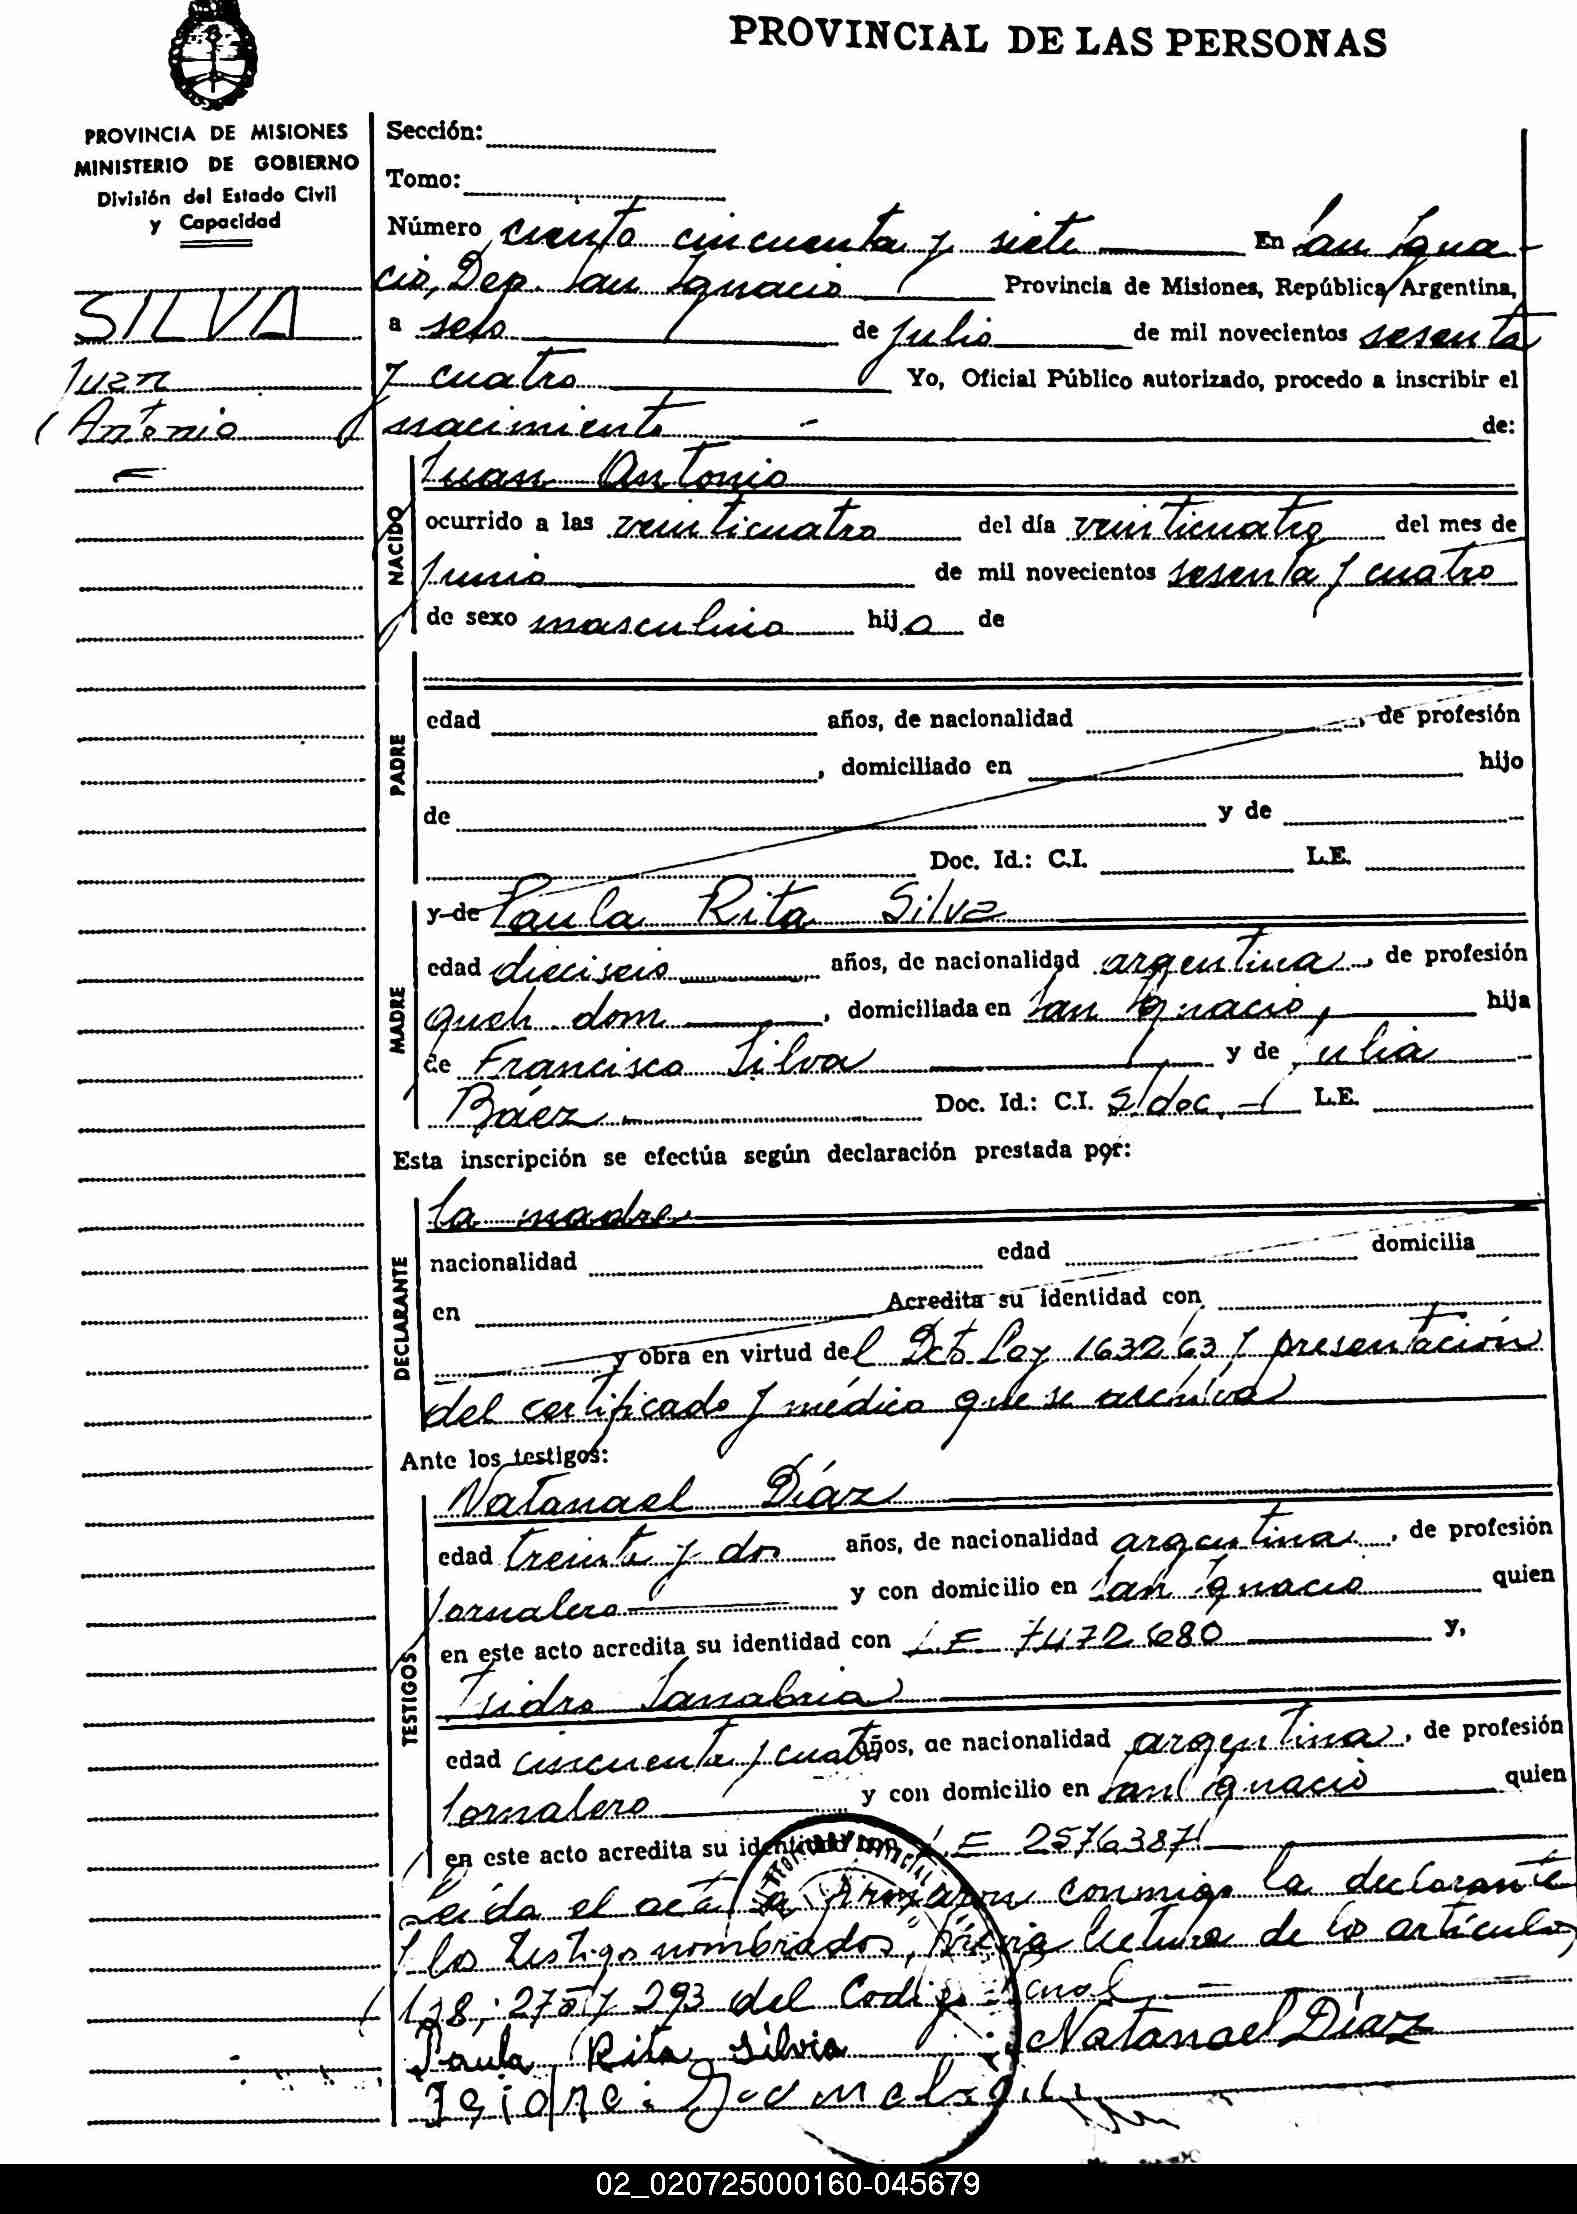 PROVINCIAL DE LAS PERSONAS
PROVINCIA DE MISIONES
MINISTERIO DE GOBIERNO
División del Estado Civil
y Capacidad
SILVA
Juan
Antonio
Sección:
Tomo:
Número ciento cincuenta y siete En San Igna-
cio, Dep. San Ignacio Provincia de Misiones, República Argentina,
a seis de julio de mil novecientos sesenta
y cuatro Yo, Oficial Público autorizado, procedo a inscribir el
nacimiento de:
NACIDO
Juan Antonio
ocurrido a las veinticuatro del día veinticuatro del mes de
Junio de mil novecientos sesenta y cuatro
de sexo masculino hijo de
PADRE
edad años, de nacionalidad , de profesión
, domiciliado en hijo
de y de
Doc. Id.: C.I. L.E.
MADRE
y de Paula Rita Silva
edad dieciseis años, de nacionalidad argentina, de profesión
queh. dom , domiciliada en San Ignacio, hija
de Francisco Silva y de Julia
Báez Doc. Id.: C.I. s/doc. L.E.
Esta inscripción se efectúa según declaración prestada por:
DECLARANTE
la madre
nacionalidad edad domicilia
en Acredita su identidad con
y obra en virtud del Dcto Ley 1632/63 y presentación
del certificado médico que se archiva
Ante los testigos:
TESTIGOS
Natanael Díaz
edad treinta y dos años, de nacionalidad argentina, de profesión
Jornalero y con domicilio en San Ignacio quien
en este acto acredita su identidad con LE 7472680 y,
Isidro Sanabria
edad cincuenta y cuatro años, de nacionalidad argentina, de profesión
Jornalero y con domicilio en San Ignacio quien
en este acto acredita su identidad con LE 2576387
Leída el acta firmaron conmigo la declarante
y los testigos nombrados, previa lectura de los artículos
138, 275 y 293 del Codigo Penal
Paula Rita Silvia Natanael Díaz
02_020725000160-045679